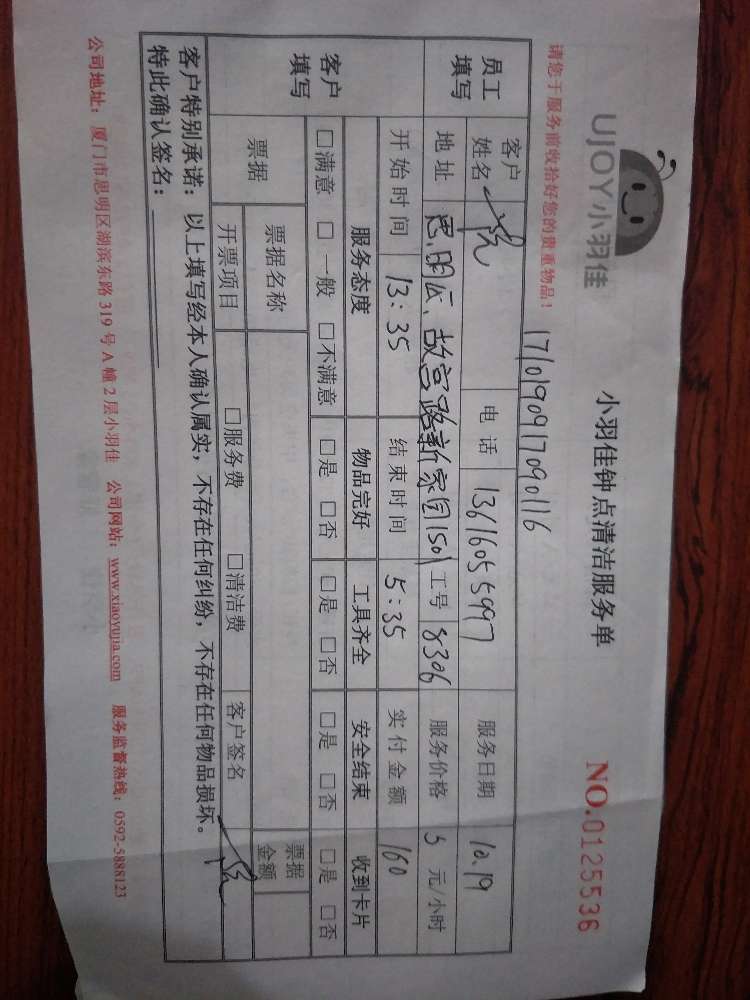 UJOY小羽佳
小羽佳钟点清洁服务单
NO.0125536
请您于服务前收拾好您的贵重物品！
1710190917090116
员工填写
客户姓名
电话 13616055997
服务日期 10.19
地址 思明区、故宫路新家园1501
工号 8306
服务价格 5 元/小时
开始时间 13:35
结束时间 5:35
实付金额 160
客户填写
服务态度 物品完好 工具齐全 安全结束 收到卡片
□满意 □一般 □不满意 □是 □否 □是 □否 □是 □否 □是 □否
票据
票据名称
票据金额
开票项目 □服务费 □清洁费
客户签名
客户特别承诺：以上填写经本人确认属实，不存在任何纠纷，不存在任何物品损坏。
特此确认签名：
公司地址：厦门市思明区湖滨东路319号A幢2层小羽佳 公司网站：www.xiaoyujia.com 服务监督热线：0592-5888123